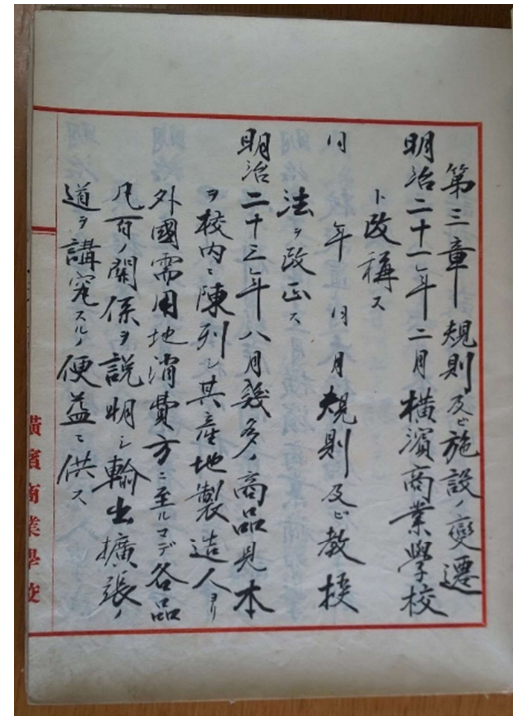 第三章 規則及ヒ施設ノ變遷
明治二十一年二月橫濱商業學校
ト改稱ス
同 年 同 月 規則及ヒ敎授
法ヲ改正ス
明治二十三年八月幾多ノ商品見本
ヲ校内ニ陳列シ其産地製造人ヨリ
外國需用地消費方ニ至ルマデ各品
凡百ノ關係ヲ説明シ輸出擴張ノ
道ヲ講究スルノ便益ニ供ス
橫濱商業學校